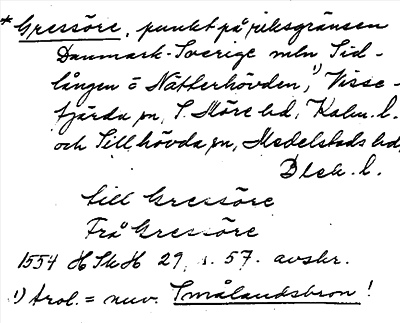 * Gressöre, punkt på riksgränsen
Danmark-Sverige mln Sid-
lången o Nätterhövden,¹) Visse-
fjärda sn, S. Möre hd, Kalm. l.
och Sillhövda sn, Medelstads hd,
Blek. l.
till Gressöre
Frå Gressöre
1554 HSkH 29, s. 57. avskr.
¹) trol. = nuv. Smålandsbron!